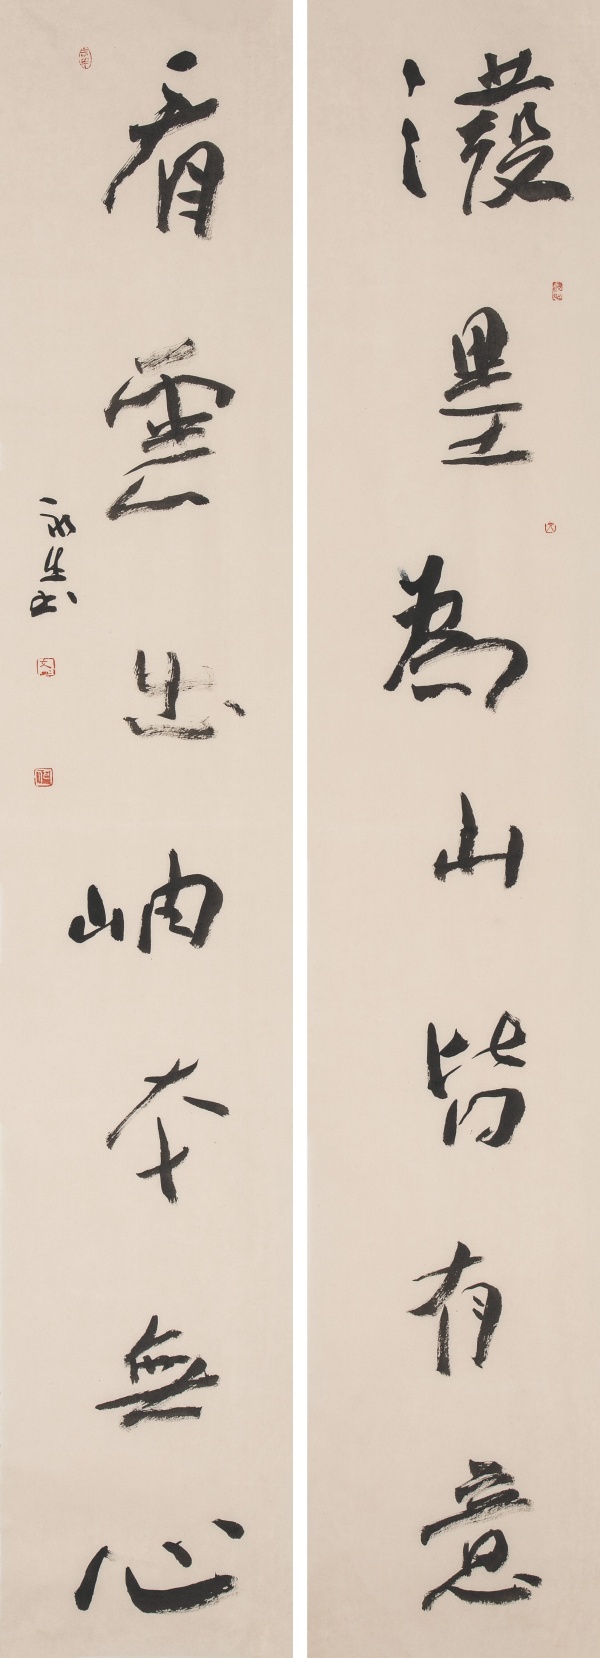 潑墨為山皆有意
看雲出岫本無心
永生书